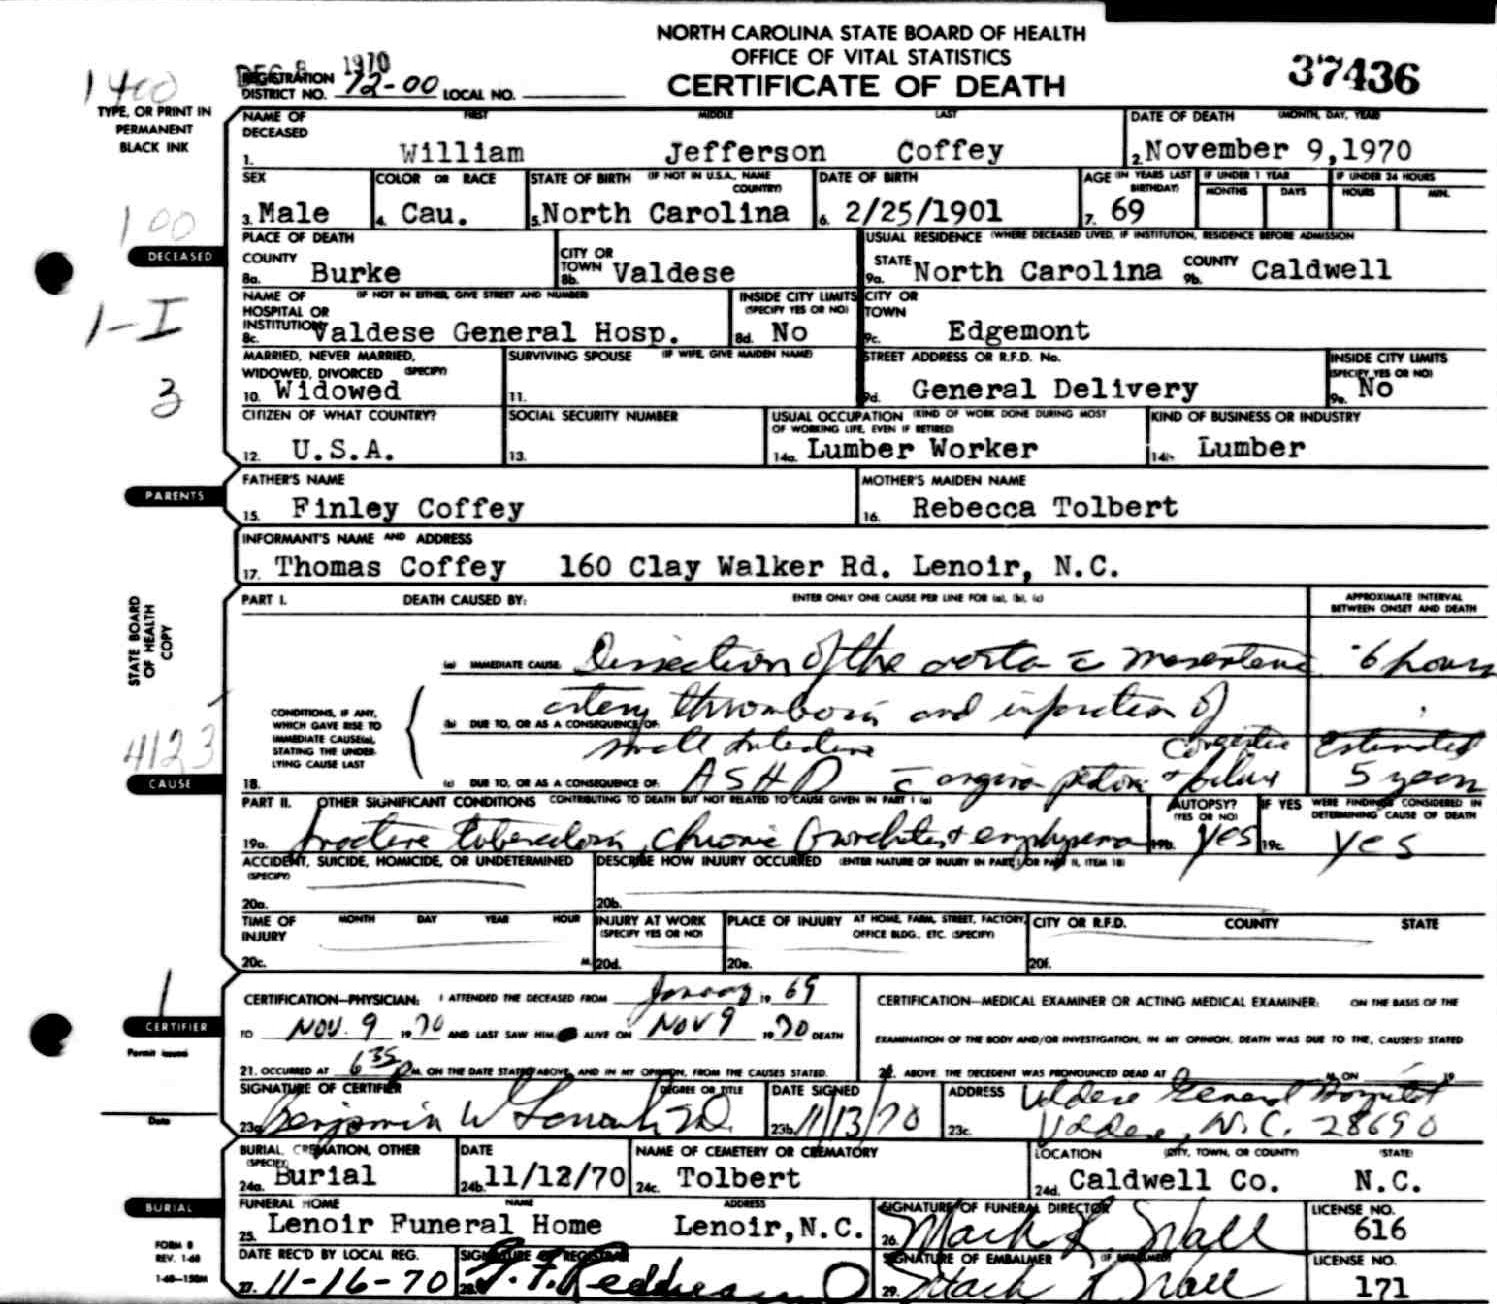 NORTH CAROLINA STATE BOARD OF HEALTH
OFFICE OF VITAL STATISTICS
CERTIFICATE OF DEATH
37436
1400
DEC 8 1970
REGISTRATION DISTRICT NO. 12-00 LOCAL NO.
TYPE, OR PRINT IN
PERMANENT
BLACK INK
NAME OF DECEASED FIRST MIDDLE LAST
1. William Jefferson Coffey
DATE OF DEATH (MONTH, DAY, YEAR)
2. November 9, 1970
SEX
3. Male
COLOR OR RACE
4. Cau.
STATE OF BIRTH (IF NOT IN U.S.A., NAME COUNTRY)
5. North Carolina
DATE OF BIRTH
6. 2/25/1901
AGE (IN YEARS LAST BIRTHDAY)
7. 69
IF UNDER 1 YEAR
MONTHS DAYS
IF UNDER 24 HOURS
HOURS MIN.
100
DECEASED
PLACE OF DEATH
COUNTY
8a. Burke
CITY OR TOWN
8b. Valdese
USUAL RESIDENCE (WHERE DECEASED LIVED, IF INSTITUTION, RESIDENCE BEFORE ADMISSION
STATE
9a. North Carolina
COUNTY
9b. Caldwell
1-I
NAME OF HOSPITAL OR INSTITUTION (IF NOT IN EITHER, GIVE STREET AND NUMBER)
8c. Valdese General Hosp.
INSIDE CITY LIMITS (SPECIFY YES OR NO)
8d. No
CITY OR TOWN
9c. Edgemont
3
MARRIED, NEVER MARRIED, WIDOWED, DIVORCED (SPECIFY)
10. Widowed
SURVIVING SPOUSE (IF WIFE, GIVE MAIDEN NAME)
11.
STREET ADDRESS OR R.F.D. No.
9d. General Delivery
INSIDE CITY LIMITS (SPECIFY YES OR NO)
9e. No
CITIZEN OF WHAT COUNTRY?
12. U.S.A.
SOCIAL SECURITY NUMBER
13.
USUAL OCCUPATION (KIND OF WORK DONE DURING MOST OF WORKING LIFE, EVEN IF RETIRED)
14a. Lumber Worker
KIND OF BUSINESS OR INDUSTRY
14b. Lumber
PARENTS
FATHER'S NAME
15. Finley Coffey
MOTHER'S MAIDEN NAME
16. Rebecca Tolbert
INFORMANT'S NAME AND ADDRESS
17. Thomas Coffey 160 Clay Walker Rd. Lenoir, N.C.
STATE BOARD
OF HEALTH
COPY
PART I. DEATH CAUSED BY: ENTER ONLY ONE CAUSE PER LINE FOR (a), (b), (c)
APPROXIMATE INTERVAL BETWEEN ONSET AND DEATH
(a) IMMEDIATE CAUSE: Dissection of the aorta c̄ mesenteric 6 hours
artery thrombosis and infarction of
CONDITIONS, IF ANY, WHICH GAVE RISE TO IMMEDIATE CAUSE(a), STATING THE UNDERLYING CAUSE LAST
(b) DUE TO, OR AS A CONSEQUENCE OF:
small intestine congestive Estimated
18. (c) DUE TO, OR AS A CONSEQUENCE OF: ASHD c̄ angina pectoris + failure 5 years
4123
CAUSE
PART II. OTHER SIGNIFICANT CONDITIONS CONTRIBUTING TO DEATH BUT NOT RELATED TO CAUSE GIVEN IN PART I (a)
19a. tuberculosis, chronic bronchitis + emphysema
AUTOPSY? (YES OR NO)
19b. yes
IF YES WERE FINDINGS CONSIDERED IN DETERMINING CAUSE OF DEATH
19c. yes
ACCIDENT, SUICIDE, HOMICIDE, OR UNDETERMINED (SPECIFY)
20a.
DESCRIBE HOW INJURY OCCURRED (ENTER NATURE OF INJURY IN PART I OR PART II, ITEM 18)
20b.
TIME OF INJURY MONTH DAY YEAR HOUR
20c. M.
INJURY AT WORK (SPECIFY YES OR NO)
20d.
PLACE OF INJURY AT HOME, FARM, STREET, FACTORY, OFFICE BLDG., ETC. (SPECIFY)
20e.
CITY OR R.F.D. COUNTY STATE
20f.
1
CERTIFIER
Permit issued
Date
CERTIFICATION—PHYSICIAN: I ATTENDED THE DECEASED FROM January 19 69
TO NOV. 9 1970 AND LAST SAW HIM ALIVE ON NOV 9 1970 DEATH
21. OCCURRED AT 6 35 P M. ON THE DATE STATED ABOVE, AND IN MY OPINION, FROM THE CAUSES STATED.
CERTIFICATION—MEDICAL EXAMINER OR ACTING MEDICAL EXAMINER: ON THE BASIS OF THE
EXAMINATION OF THE BODY AND/OR INVESTIGATION, IN MY OPINION, DEATH WAS DUE TO THE, CAUSE(S) STATED
22. ABOVE. THE DECEDENT WAS PRONOUNCED DEAD AT M. ON 19
SIGNATURE OF CERTIFIER DEGREE OR TITLE
23a. Benjamin W M.D.
DATE SIGNED
23b. 11/13/70
ADDRESS Valdese General Hospital
23c. Valdese, N.C. 28690
BURIAL
BURIAL, CREMATION, OTHER (SPECIFY)
24a. Burial
DATE
24b. 11/12/70
NAME OF CEMETERY OR CREMATORY
24c. Tolbert
LOCATION (CITY, TOWN, OR COUNTY) (STATE)
24d. Caldwell Co. N.C.
FUNERAL HOME NAME ADDRESS
25. Lenoir Funeral Home Lenoir, N.C.
SIGNATURE OF FUNERAL DIRECTOR
26. Mack
LICENSE NO.
616
FORM 8
REV. 1-68
1-68-150M
DATE REC'D BY LOCAL REG.
27. 11-16-70
SIGNATURE OF REGISTRAR
28.
SIGNATURE OF EMBALMER (IF EMBALMED)
29. Mack
LICENSE NO.
171